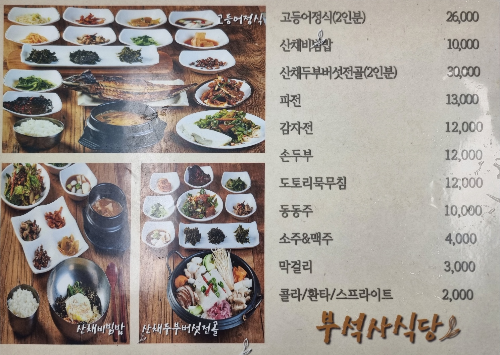 고등어정식
산채비빔밥
산채두부버섯전골
고등어정식(2인분) 26,000
산채비빔밥 10,000
산채두부버섯전골(2인분) 30,000
파전 13,000
감자전 12,000
손두부 12,000
도토리묵무침 12,000
동동주 10,000
소주&맥주 4,000
막걸리 3,000
콜라/환타/스프라이트 2,000
부석사식당